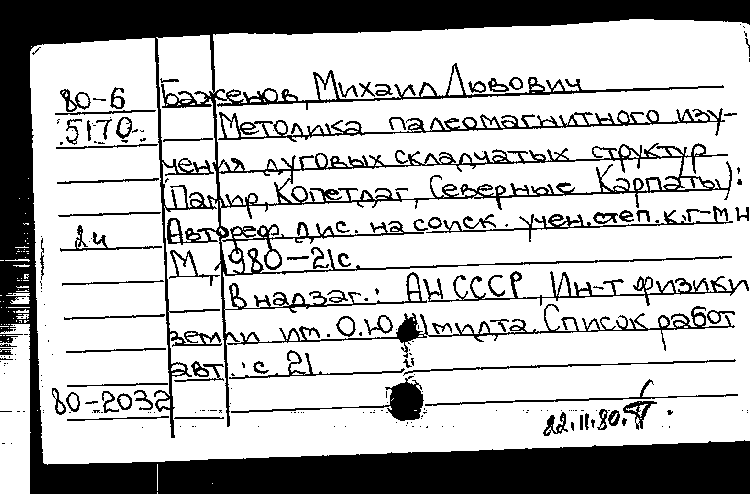 80-6 Баженов, Михаил Львович
5170 Методика палеомагнитного изу-
чения дуговых складчатых структур
(Памир, Копетдаг, Северные Карпаты):
2и Автореф. дис. на соиск. учен. степ. к.г-м.н
М, 1980-21с.
В надзаг.: АН СССР, Ин-т физики
земли им. О.Ю. Шмидта. Список работ
авт.: с. 21.
80-2032
22.11.80.